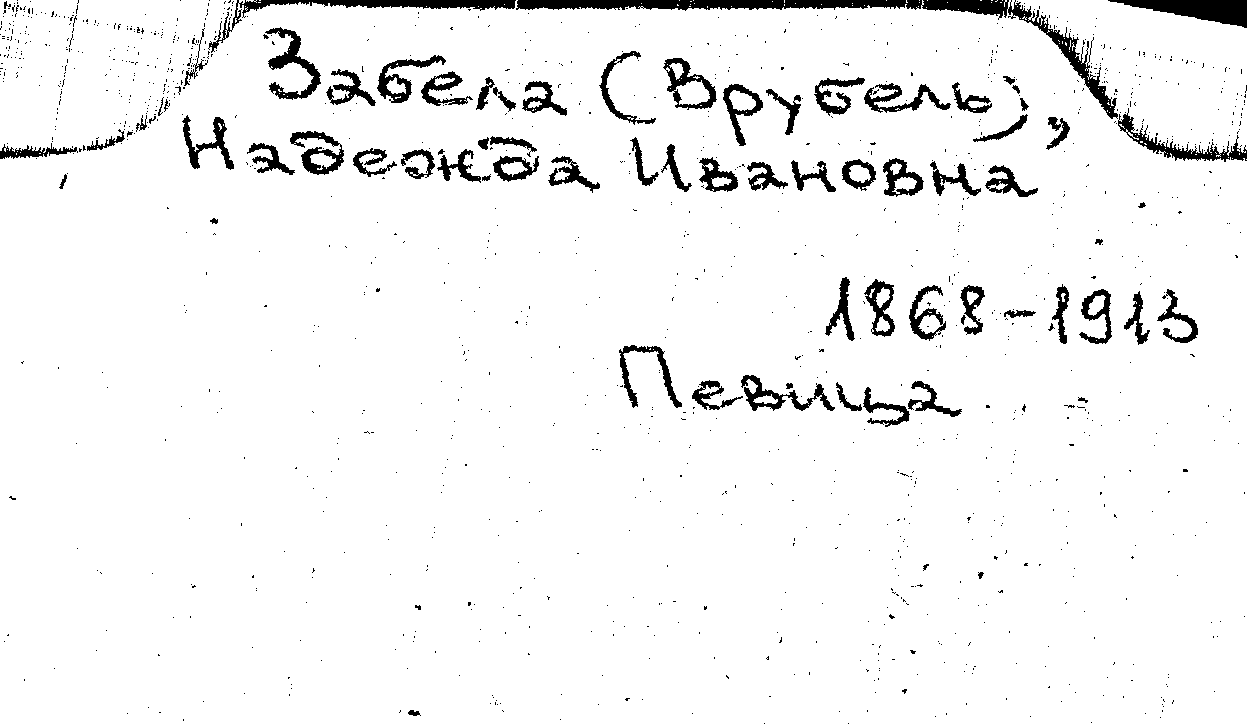 Забела (Врубель),
Надежда Ивановна
1868-1913
Певица